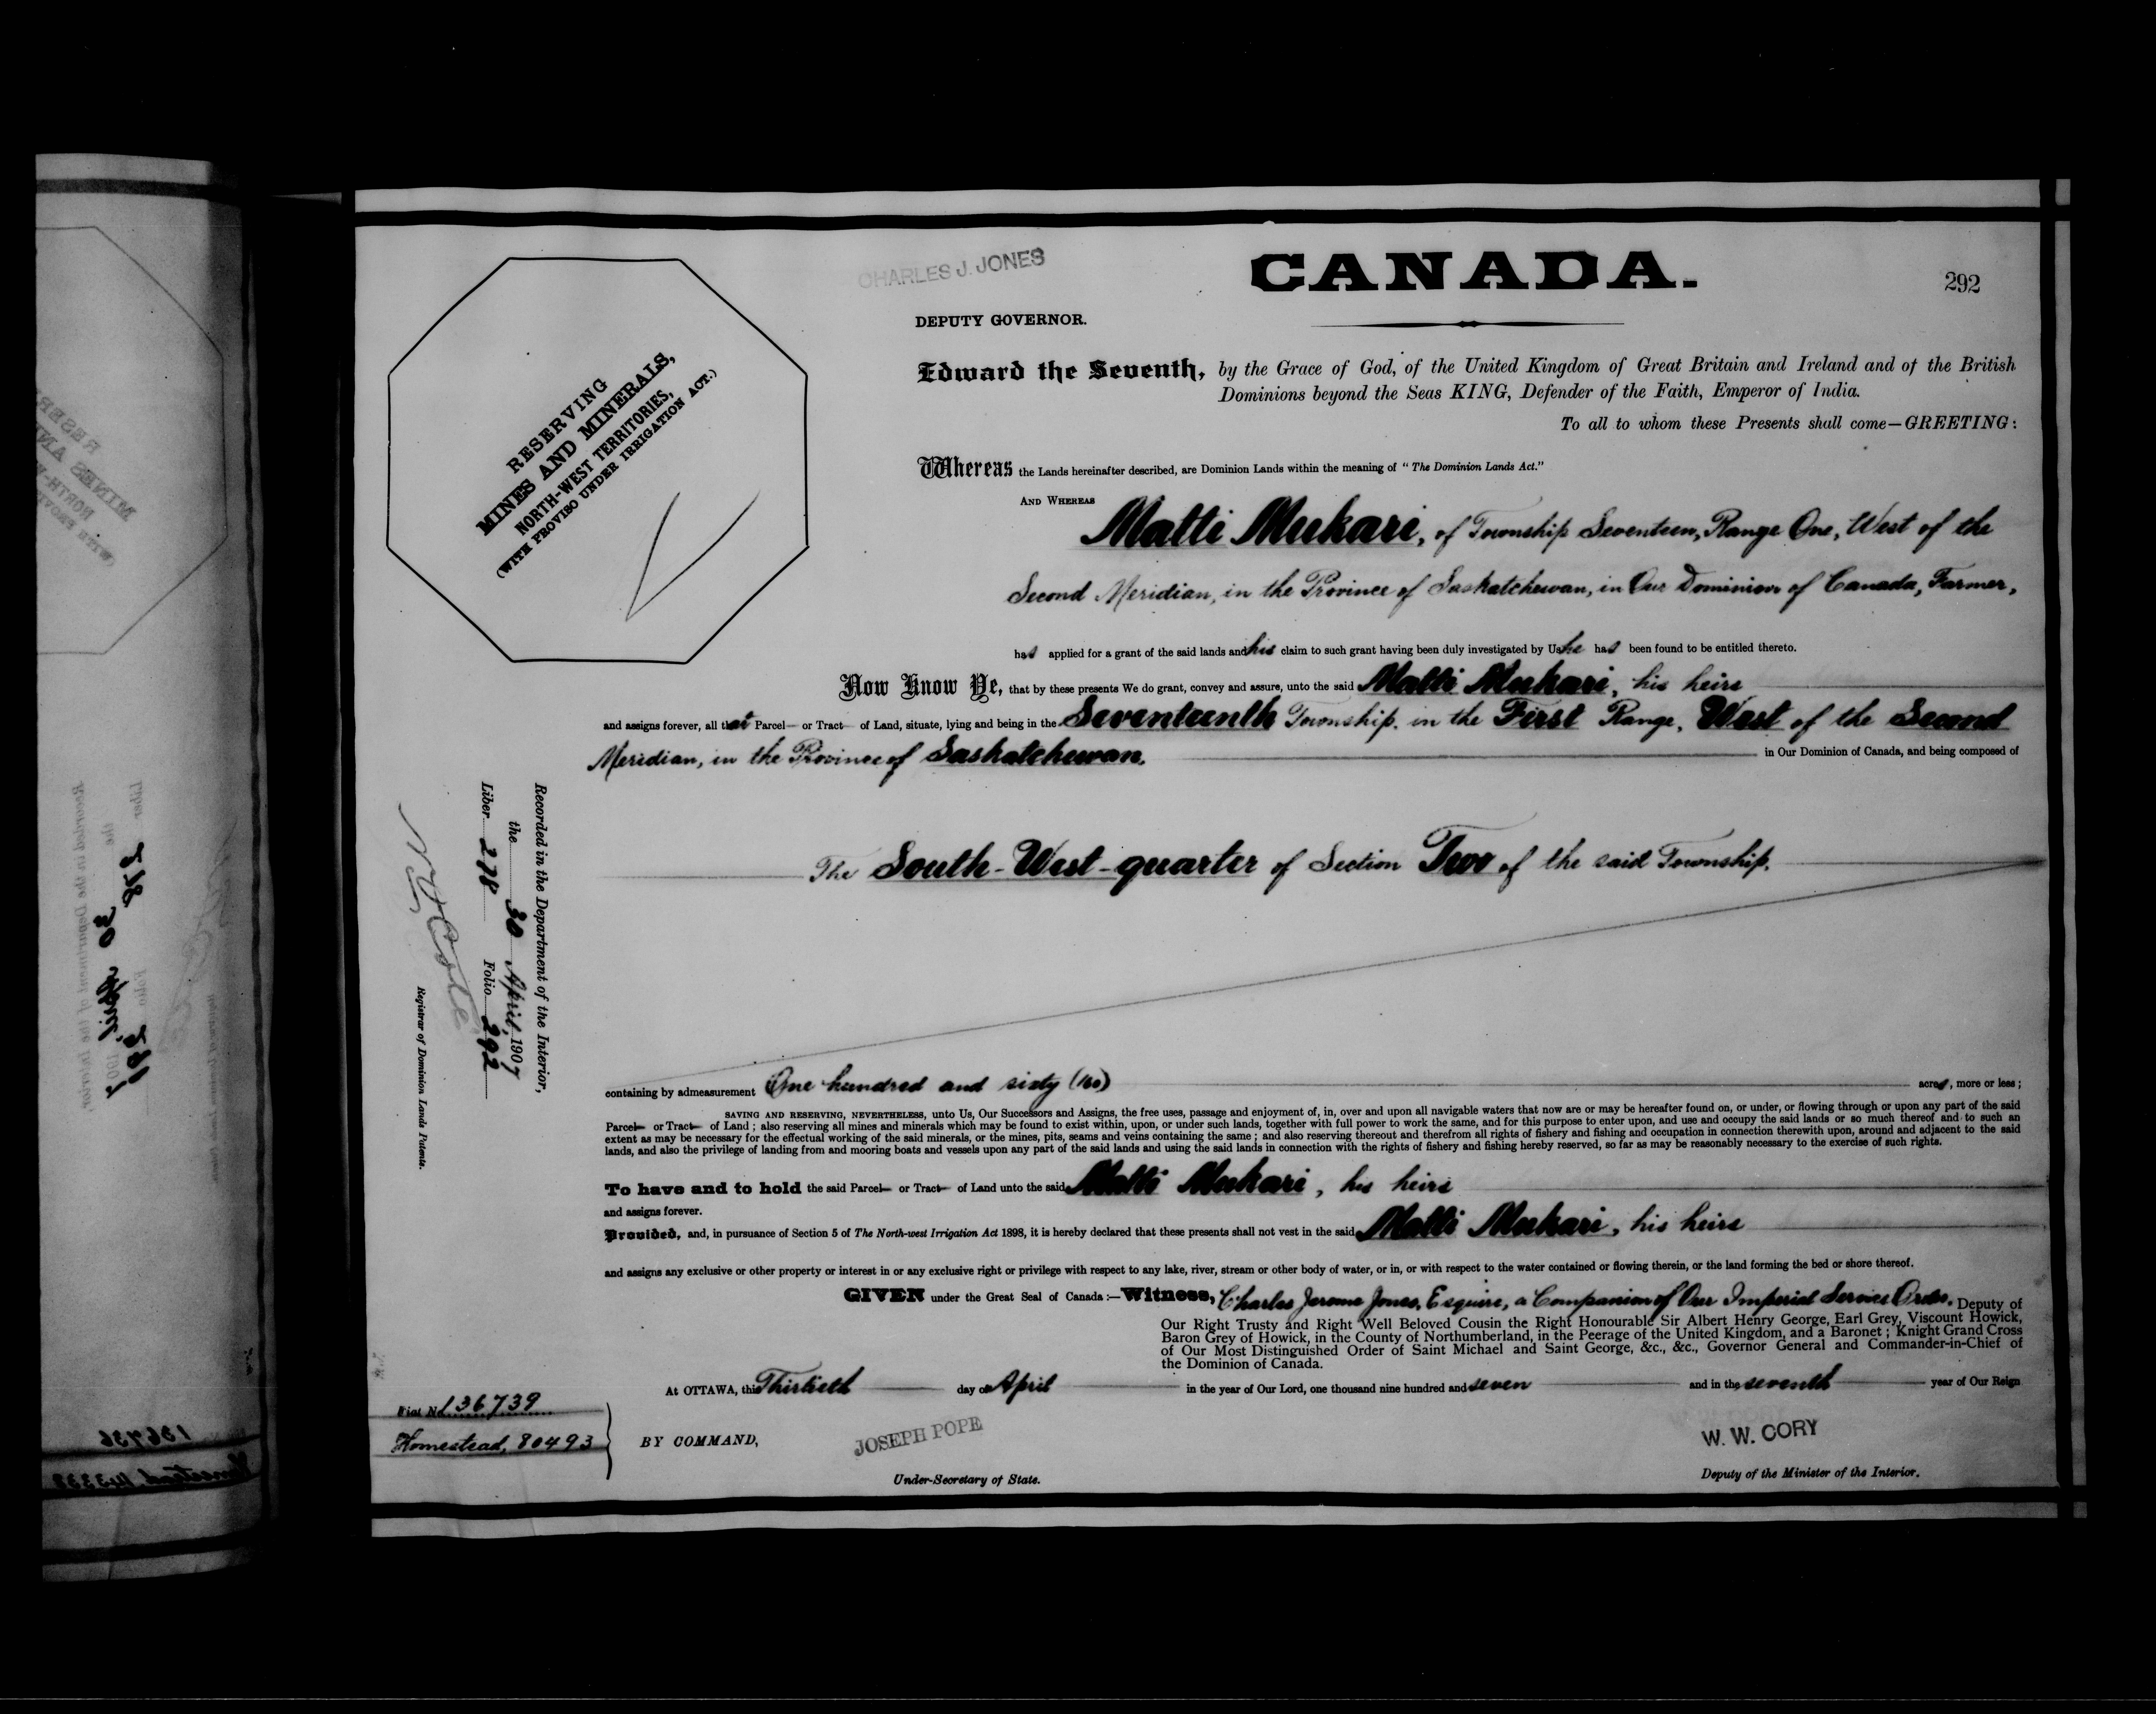 CHARLES J. JONES
CANADA.
292
DEPUTY GOVERNOR.
RESERVING
MINES AND MINERALS,
NORTH-WEST TERRITORIES,
(WITH PROVISO UNDER IRRIGATION ACT.)
Edward the Seventh, by the Grace of God, of the United Kingdom of Great Britain and Ireland and of the British
Dominions beyond the Seas KING, Defender of the Faith, Emperor of India.
To all to whom these Presents shall come—GREETING:
Whereas the Lands hereinafter described, are Dominion Lands within the meaning of "The Dominion Lands Act."
AND WHEREAS
Matti Mukari, of Township Seventeen, Range One, West of the
Second Meridian, in the Province of Saskatchewan, in Our Dominion of Canada, Farmer,
has applied for a grant of the said lands and his claim to such grant having been duly investigated by Us he has been found to be entitled thereto.
Now Know Ye, that by these presents We do grant, convey and assure, unto the said Matti Mukari, his heirs
and assigns forever, all that Parcel or Tract of Land, situate, lying and being in the Seventeenth Township, in the First Range, West of the Second
Meridian, in the Province of Saskatchewan, in Our Dominion of Canada, and being composed of
The South-West-quarter of Section Two of the said Township.
containing by admeasurement One hundred and sixty (160) acres, more or less;
SAVING AND RESERVING, NEVERTHELESS, unto Us, Our Successors and Assigns, the free uses, passage and enjoyment of, in, over and upon all navigable waters that now are or may be hereafter found on, or under, or flowing through or upon any part of the said
Parcel or Tract of Land; also reserving all mines and minerals which may be found to exist within, upon, or under such lands, together with full power to work the same, and for this purpose to enter upon, and use and occupy the said lands or so much thereof and to such an
extent as may be necessary for the effectual working of the said minerals, or the mines, pits, seams and veins containing the same; and also reserving thereout and therefrom all rights of fishery and fishing and occupation in connection therewith upon, around and adjacent to the said
lands, and also the privilege of landing from and mooring boats and vessels upon any part of the said lands and using the said lands in connection with the rights of fishery and fishing hereby reserved, so far as may be reasonably necessary to the exercise of such rights.
To have and to hold the said Parcel or Tract of Land unto the said Matti Mukari, his heirs
and assigns forever.
Provided, and, in pursuance of Section 5 of The North-west Irrigation Act 1898, it is hereby declared that these presents shall not vest in the said Matti Mukari, his heirs
and assigns any exclusive or other property or interest in or any exclusive right or privilege with respect to any lake, river, stream or other body of water, or in, or with respect to the water contained or flowing therein, or the land forming the bed or shore thereof.
GIVEN under the Great Seal of Canada:—Witness, Charles Jerome Jones, Esquire, a Companion of Our Imperial Service Order, Deputy of
Our Right Trusty and Right Well Beloved Cousin the Right Honourable Sir Albert Henry George, Earl Grey, Viscount Howick,
Baron Grey of Howick, in the County of Northumberland, in the Peerage of the United Kingdom, and a Baronet; Knight Grand Cross
of Our Most Distinguished Order of Saint Michael and Saint George, &c., &c., Governor General and Commander-in-Chief of
the Dominion of Canada.
At OTTAWA, this Thirtieth day of April in the year of Our Lord, one thousand nine hundred and seven and in the seventh year of Our Reign
BY COMMAND,
JOSEPH POPE
Under-Secretary of State.
W. W. CORY
Deputy of the Minister of the Interior.
Fiat No. 136739
Homestead, 80493
Recorded in the Department of the Interior,
the 30 April, 1907
Liber 278 Folio 292
Registrar of Dominion Lands Patents.